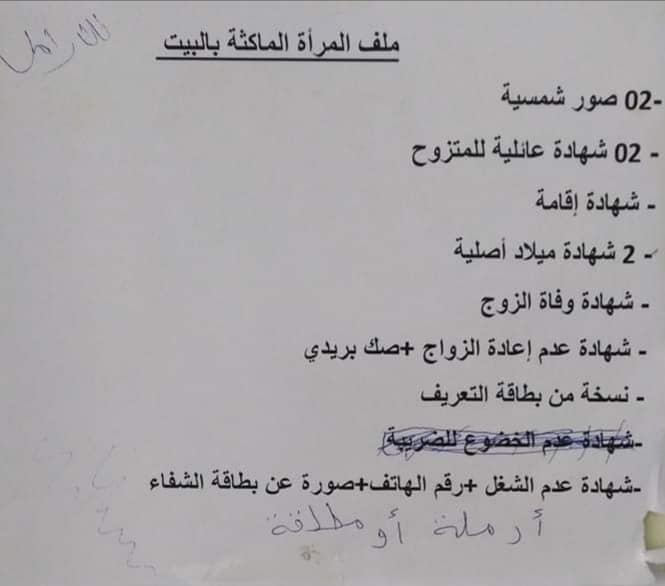 للأرامل
ملف المرأة الماكثة بالبيت
-02 صور شمسية
- 02 شهادة عائلية للمتزوح
- شهادة إقامة
- 2 شهادة ميلاد أصلية
- شهادة وفاة الزوج
- شهادة عدم إعادة الزواج +صك بريدي
- نسخة من بطاقة التعريف
-شهادة عدم الخضوع للضريبة
-شهادة عدم الشغل +رقم الهاتف+صورة عن بطاقة الشفاء
أرملة أو مطلقة